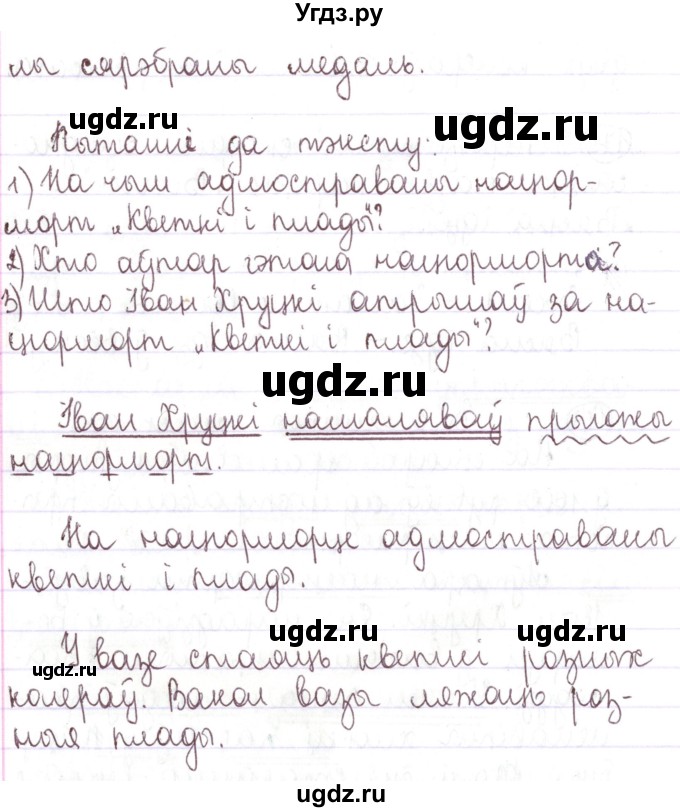 Угдз.ру
лы сярэбраны медаль.
ugdz.ru ugdz.ru
Пытанні да тэксту:
1) На чым адлюстраваны нацюр-
морт „Кветкі і плады"?
2) Хто аўтар гэтага нацюрморта?
3) Што Іван Хруцкі атрымаў за на-
цюрморт „Кветкі і плады"?
ugdz.ru
Іван Хруцкі намаляваў прыгожы
нацюрморт.
ugdz.ru
На нацюрморце адлюстраваны
кветкі і плады.
ugdz.ru ugdz.ru
У вазе стаяць кветкі розных
колераў. Вакол вазы ляжаць роз-
ныя плады.
ugdz.ru